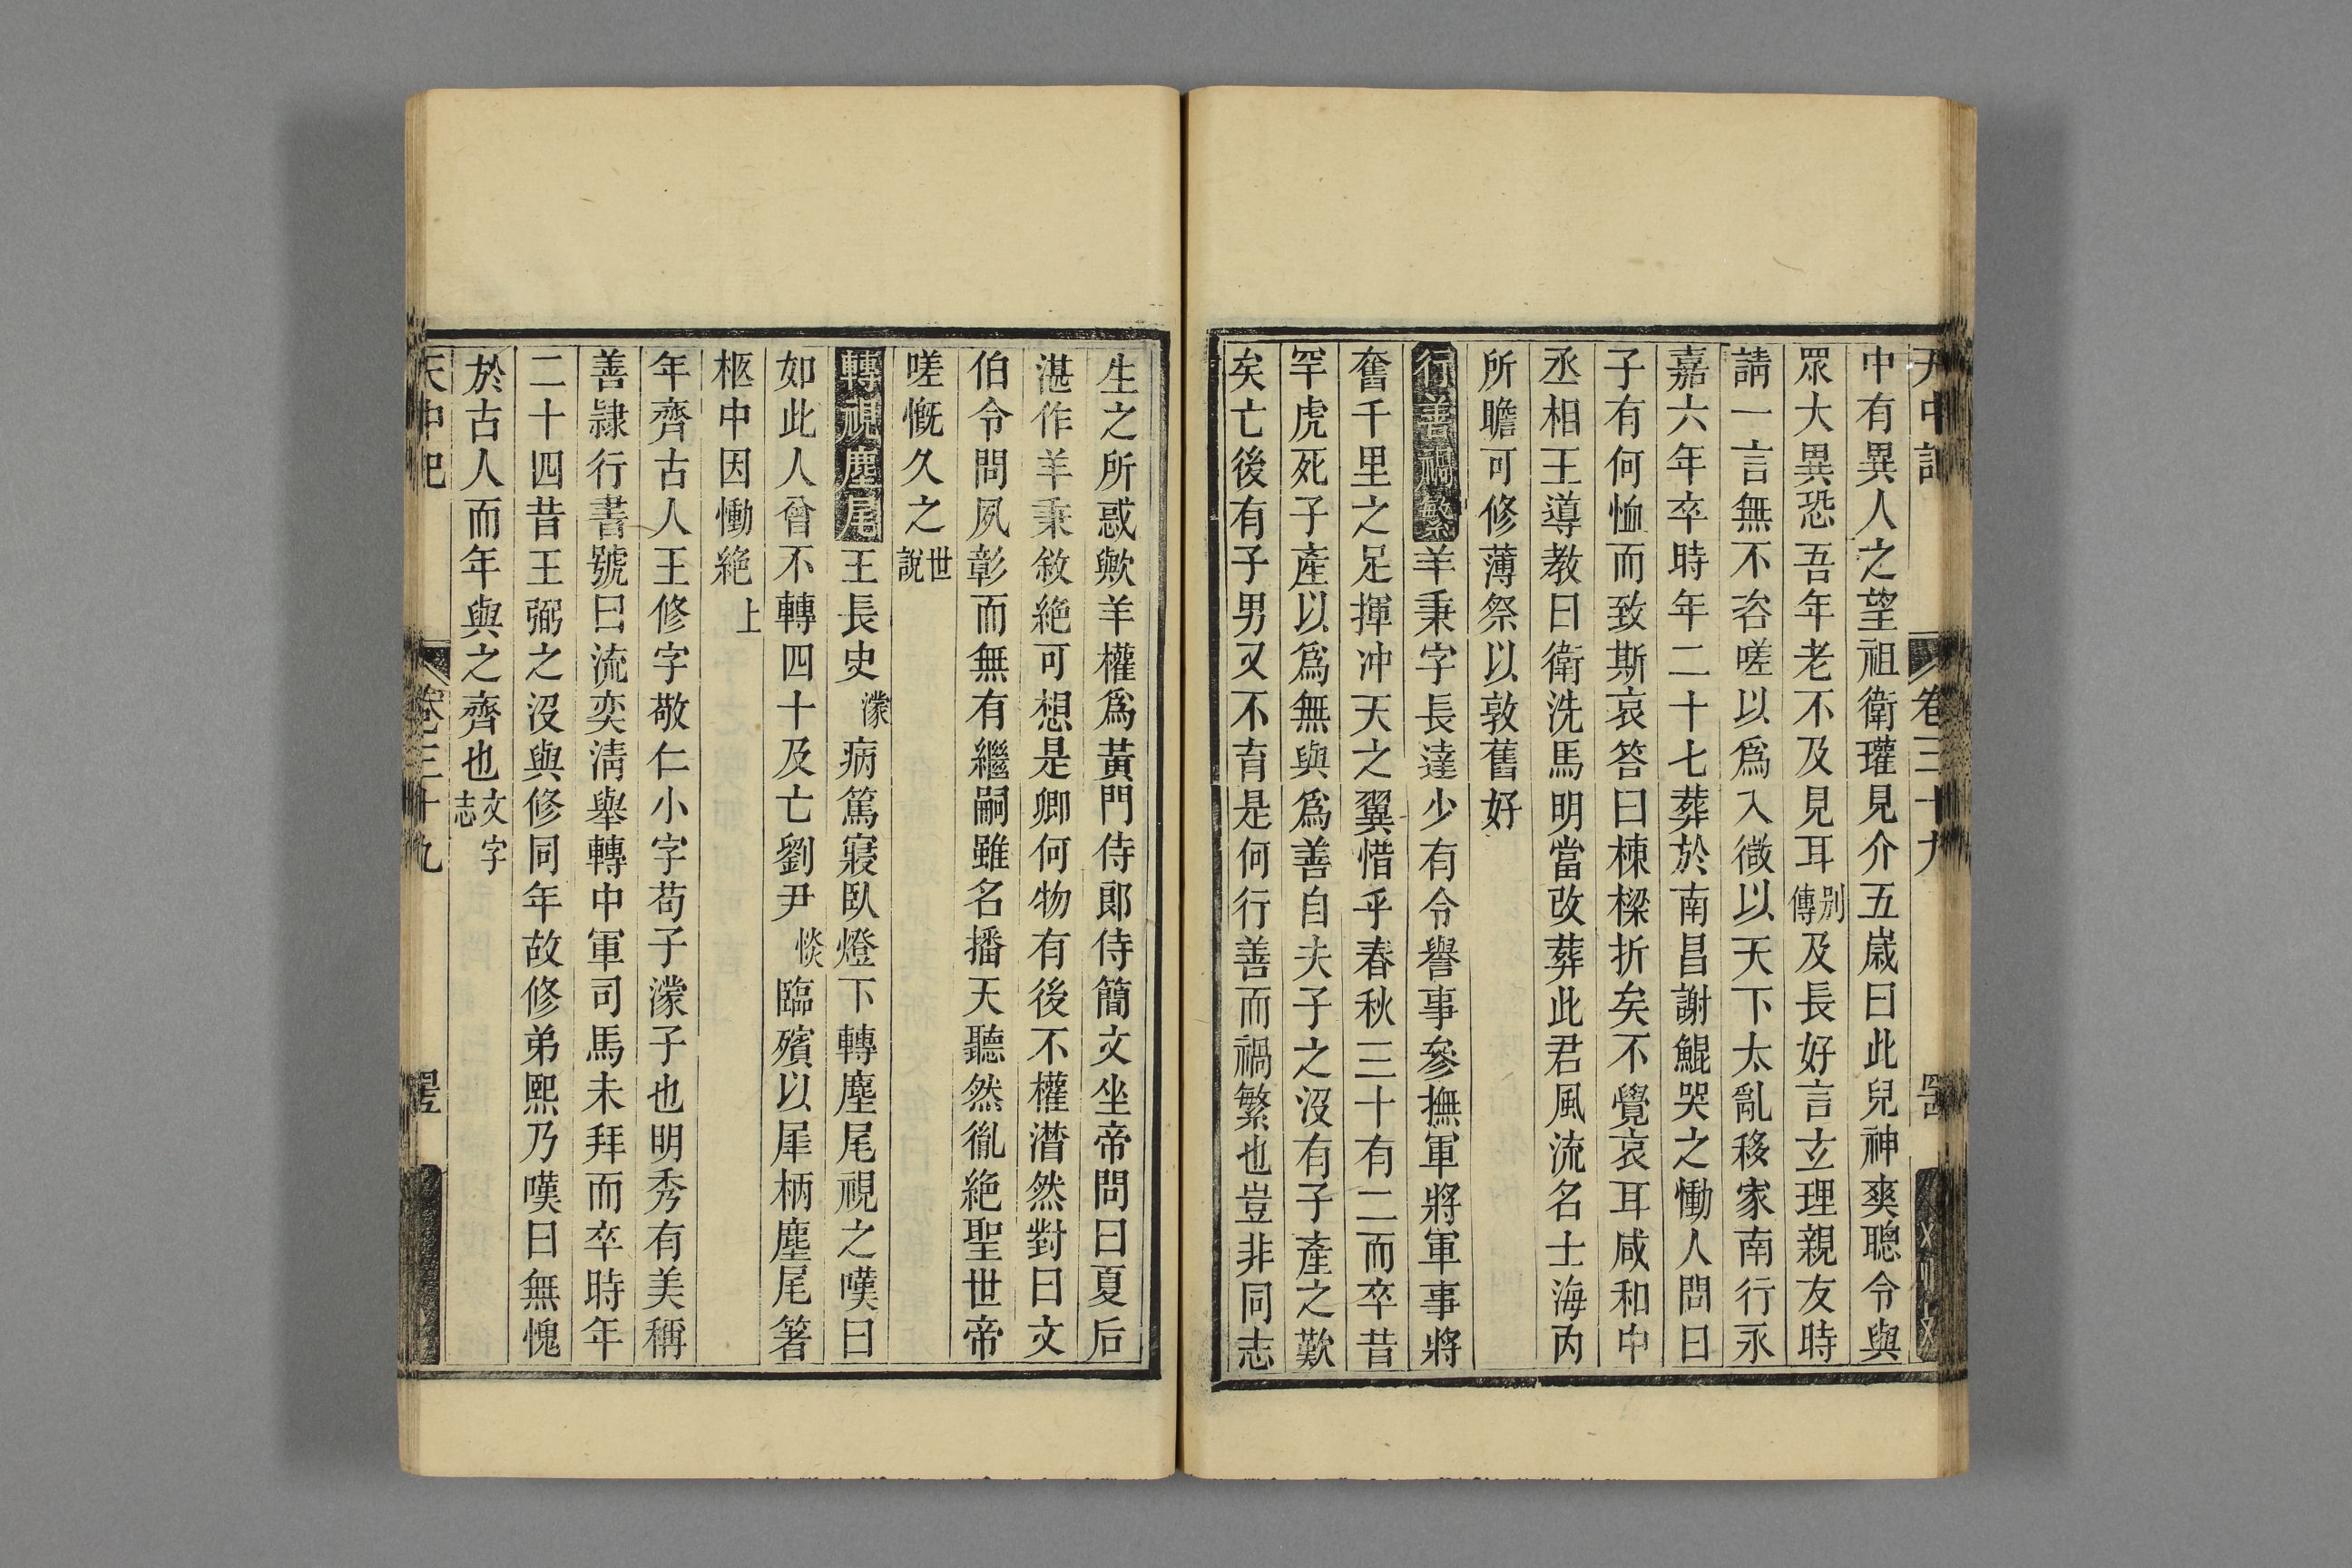 中有異人之望祖衛瓘見介五歲曰此兒神爽聰令與
眾大異恐吾年老不及見耳別傳及長好言玄理親友時
請一言無不咨嗟以為入微以天下大亂移家南行永
嘉六年卒時年二十七葬於南昌謝鯤哭之慟人問曰
子有何恤而致斯哀答曰棟樑折矣不覺哀耳咸和中
丞相王導教曰衛洗馬明當改葬此君風流名士海內
所瞻可修薄祭以敦舊好
行善禍繁羊秉字長達少有令譽事參撫軍將軍事將
奮千里之足揮沖天之翼惜乎春秋三十有二而卒昔
罕虎死子產以為無與為善自夫子之沒有子產之歎
矣亡後有子男又不育是何行善而禍繁也豈非同志
生之所惑歟羊權為黃門侍郎侍簡文坐帝問曰夏后
湛作羊秉敘絕可想是卿何物有後不權潸然對曰文
伯令問夙彰而無有繼嗣雖名播天聽然胤絕聖世帝
嗟慨久之世說
轉視麈尾王長史濛病篤寢臥燈下轉麈尾視之嘆曰
如此人曾不轉四十及亡劉尹惔臨殯以犀柄麈尾箸
柩中因慟絕上
年齊古人王修字敬仁小字苟子濛子也明秀有美稱
善隸行書號曰流奕清舉轉中軍司馬未拜而卒時年
二十四昔王弼之沒與修同年故修弟熙乃嘆曰無愧
於古人而年與之齊也文字志
天中記
卷三十九